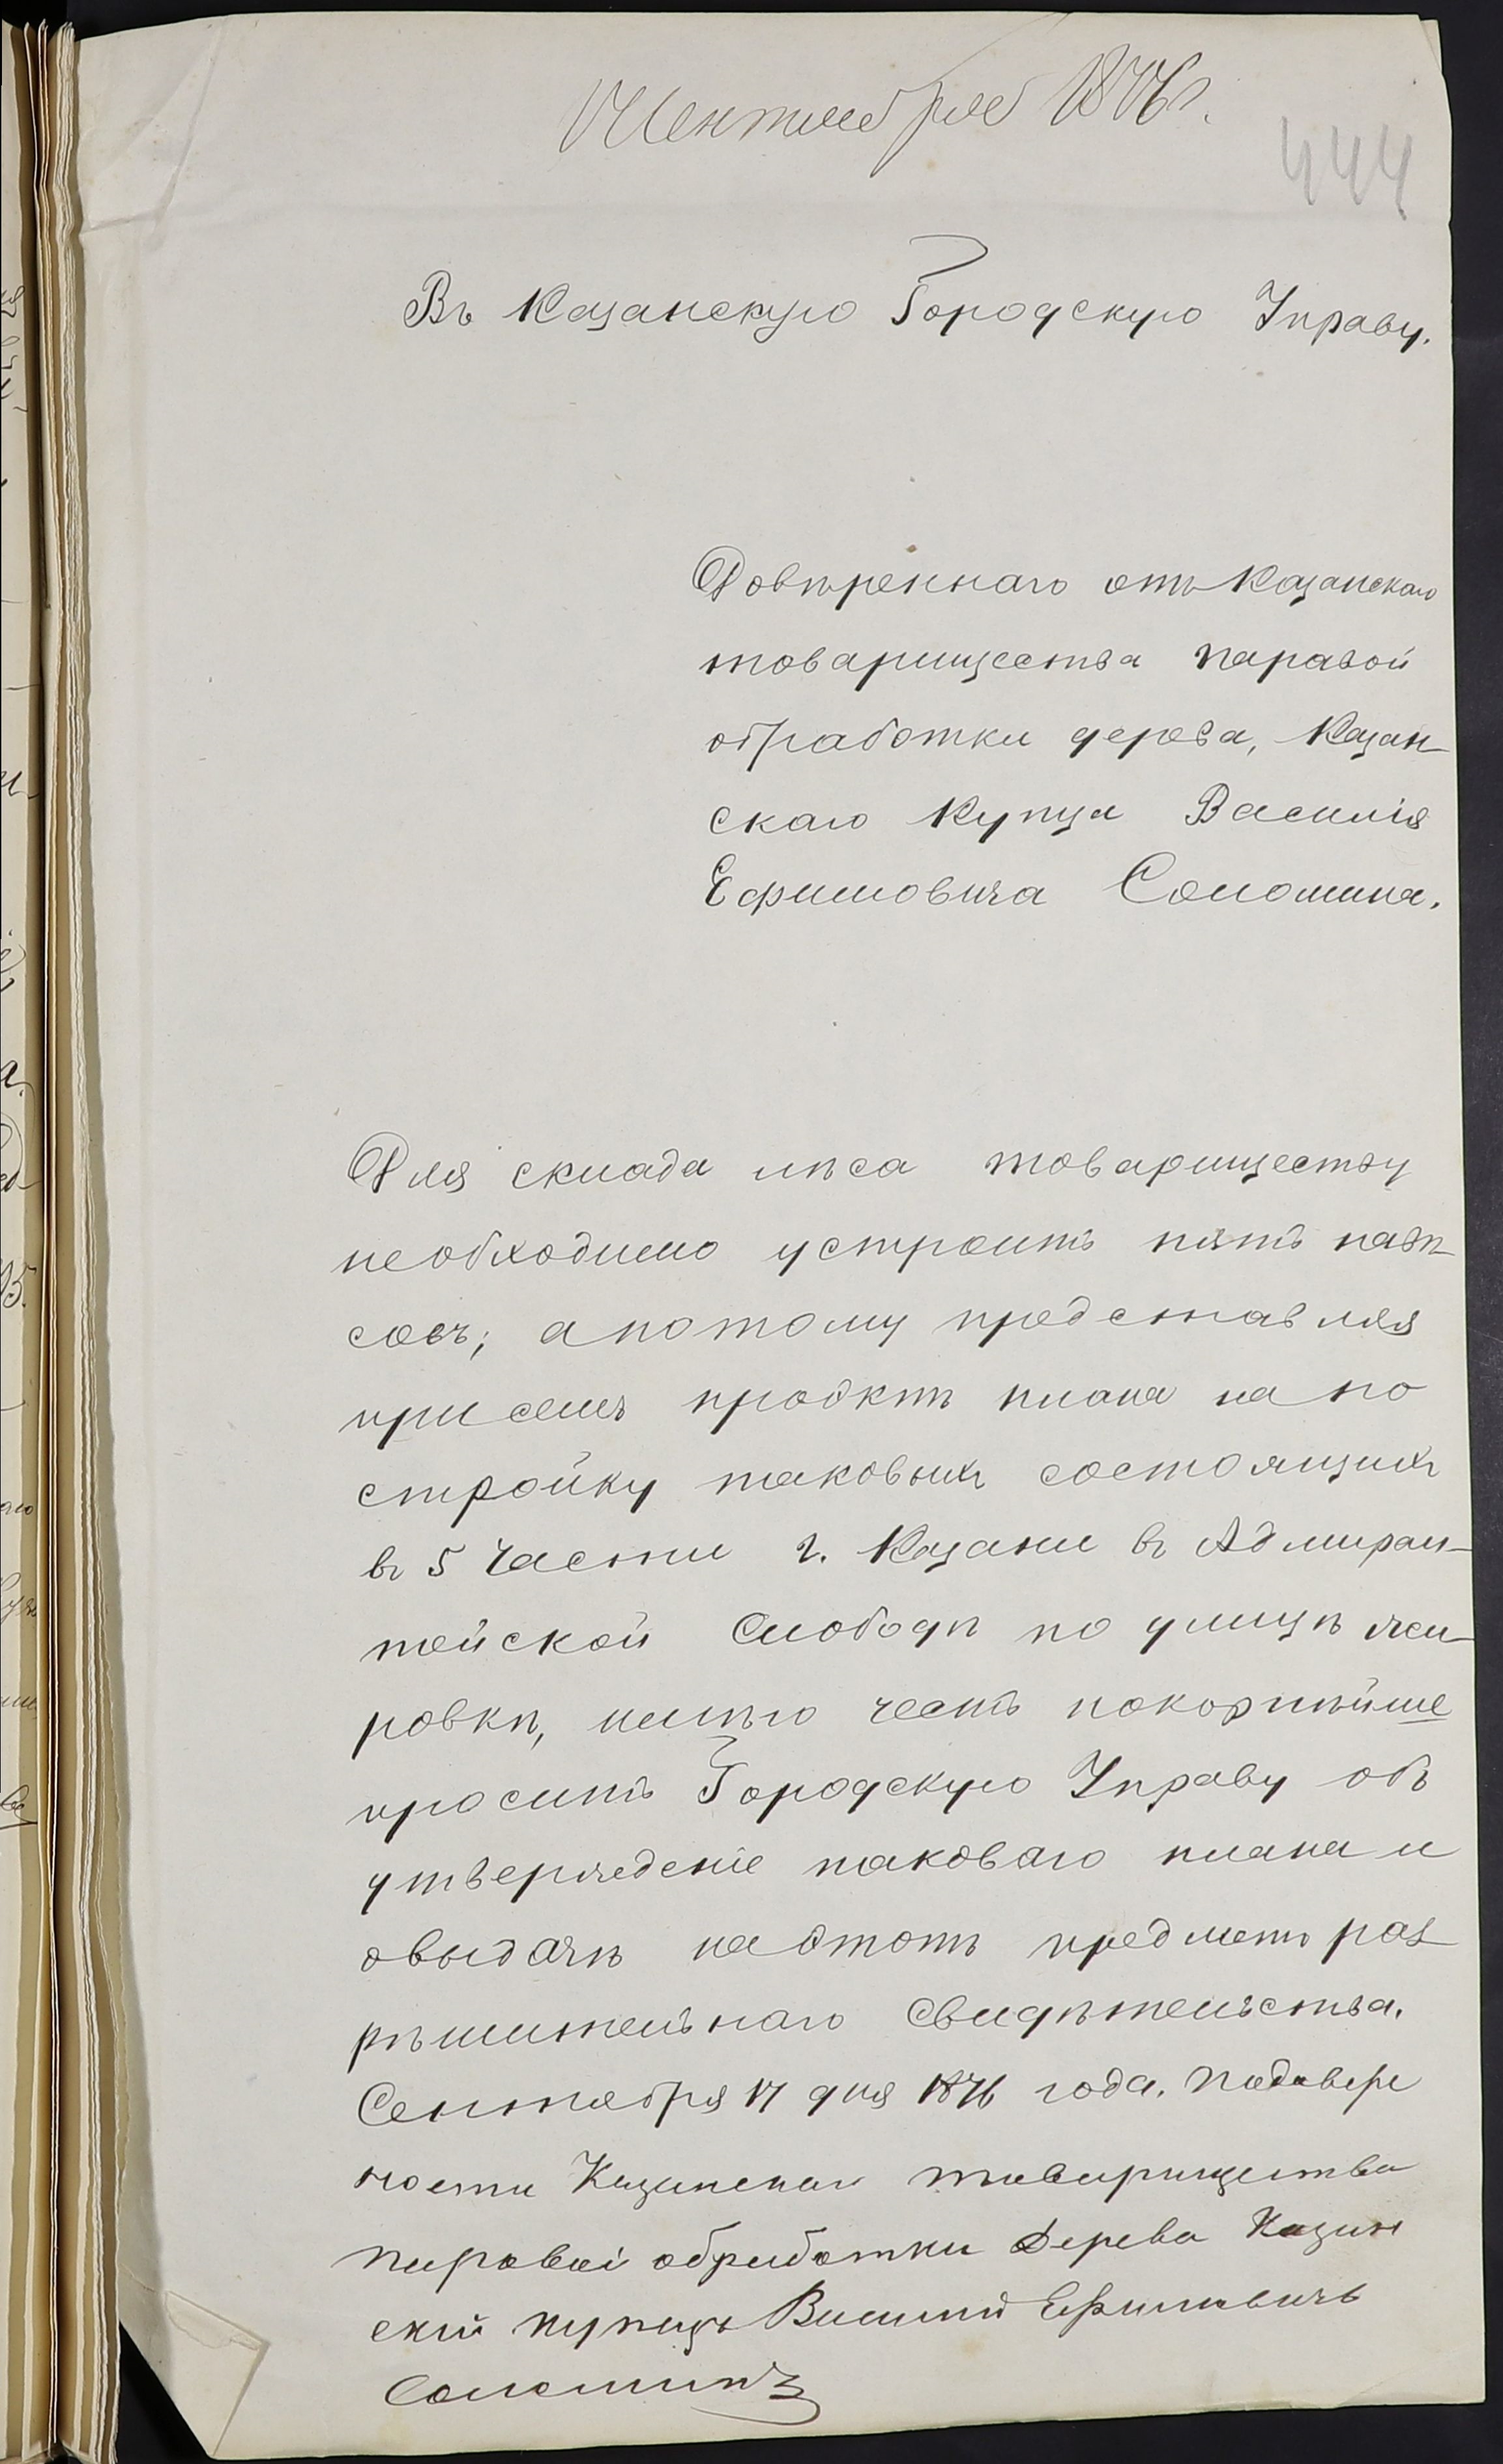 17 Сентября 1876 г.
444
Въ Казанскую Городскую Управу.
Довѣреннаго отъ Казанскаго
товарищества паравой
обработки дерева, Казан-
скаго Купца Василія
Ефимовича Соломина.
Для склада лѣса товариществу
необходимо устроить пять навѣ-
совъ; а потому представляя
при семъ проэктъ плана на по
стройку таковыхъ состоящихъ
въ 5 Части г. Казани въ Адмирал-
тейской Слободѣ по улицѣ
ровкѣ, имѣю честь покорнѣйше
просить Городскую Управу объ
утвержденіе таковаго плана и
о выдачѣ на этотъ предметъ раз-
рѣшительнаго Свидѣтельства.
Сентября 17 дня 1876 года. По довѣре
ности Казанскаго товарищества
паровой обработки дерева Казан
скій купецъ Василий Ефимовичъ
Соломинъ